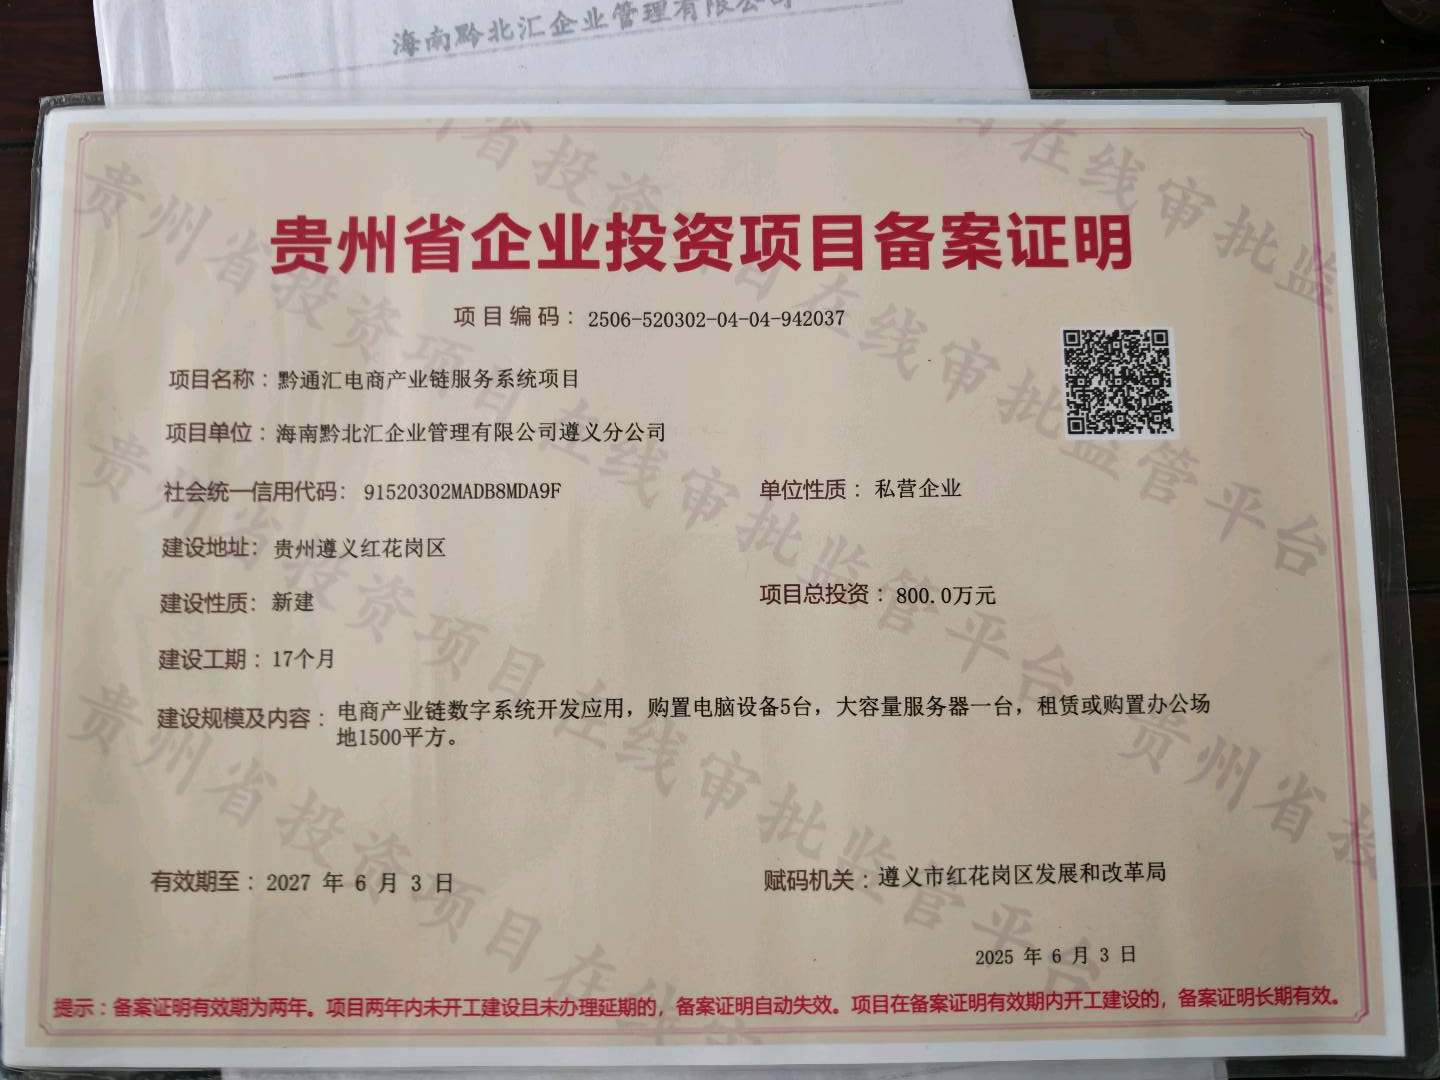 海南黔北汇企业管理有限公司
贵州省企业投资项目备案证明
项目编码：2506-520302-04-04-942037
项目名称：黔通汇电商产业链服务系统项目
项目单位：海南黔北汇企业管理有限公司遵义分公司
社会统一信用代码：91520302MADB8MDA9F
单位性质：私营企业
建设地址：贵州遵义红花岗区
建设性质：新建
项目总投资：800.0万元
建设工期：17个月
建设规模及内容：电商产业链数字系统开发应用，购置电脑设备5台，大容量服务器一台，租赁或购置办公场
地1500平方。
有效期至：2027 年 6 月 3 日
赋码机关：遵义市红花岗区发展和改革局
2025 年 6 月 3 日
提示：备案证明有效期为两年。项目两年内未开工建设且未办理延期的，备案证明自动失效。项目在备案证明有效期内开工建设的，备案证明长期有效。
贵州省投资项目在线审批监管平台